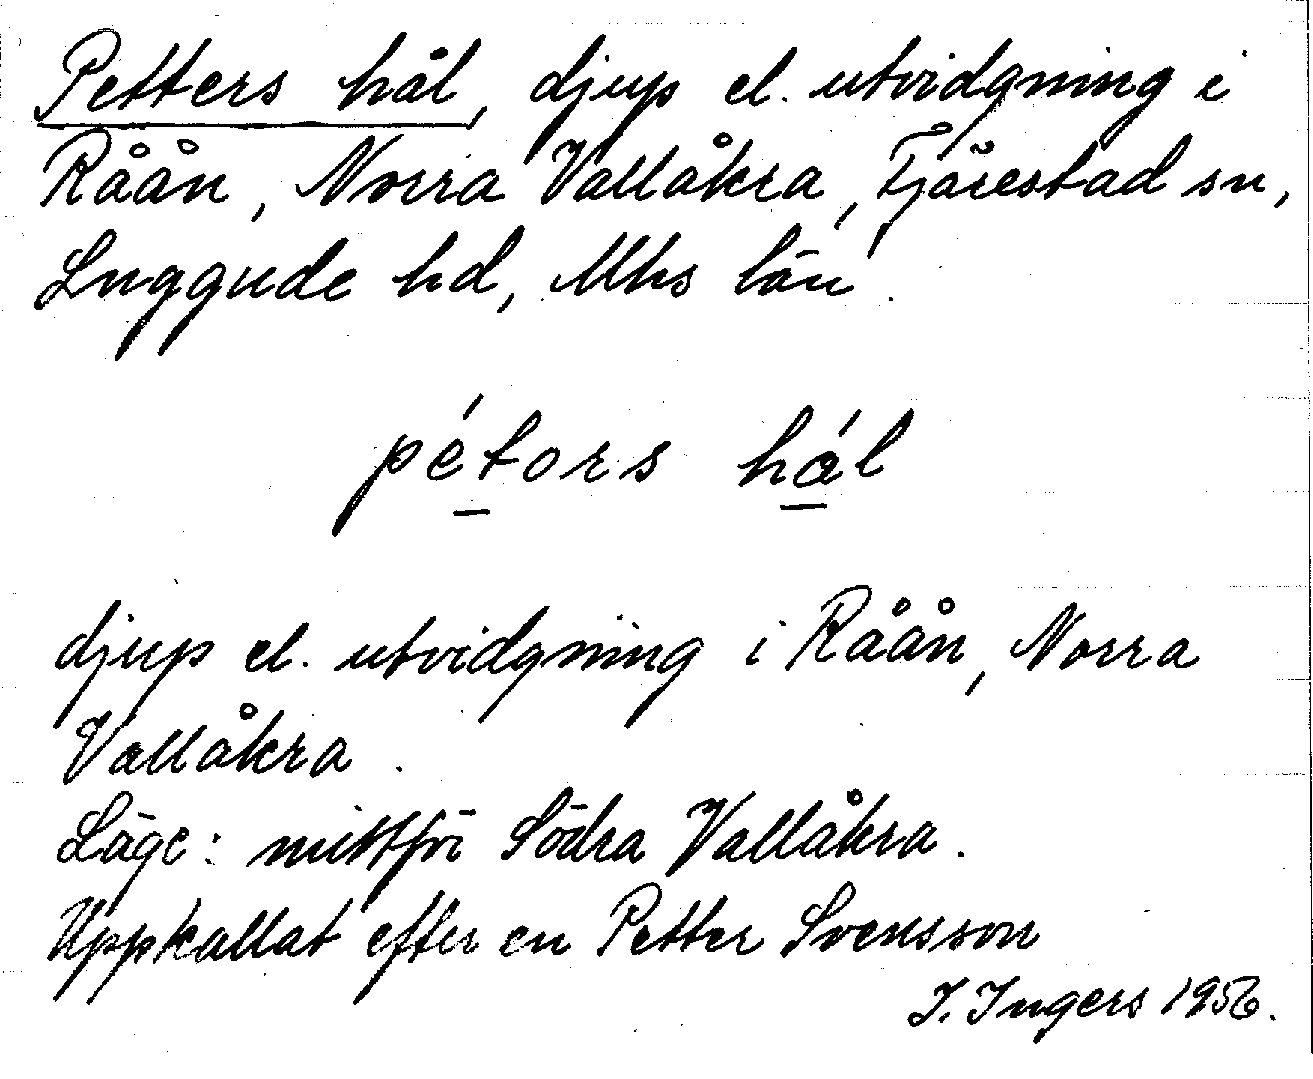 Petters hål, djup el. utvidgning i
Råån, Norra Vallåkra, Fjärestad sn,
Luggude hd, Mhs län.
pétors hål
djup el. utvidgning i Råån, Norra
Vallåkra.
Läge: mittför Södra Vallåkra.
Uppkallat efter en Petter Svensson
I. Ingers 1956.